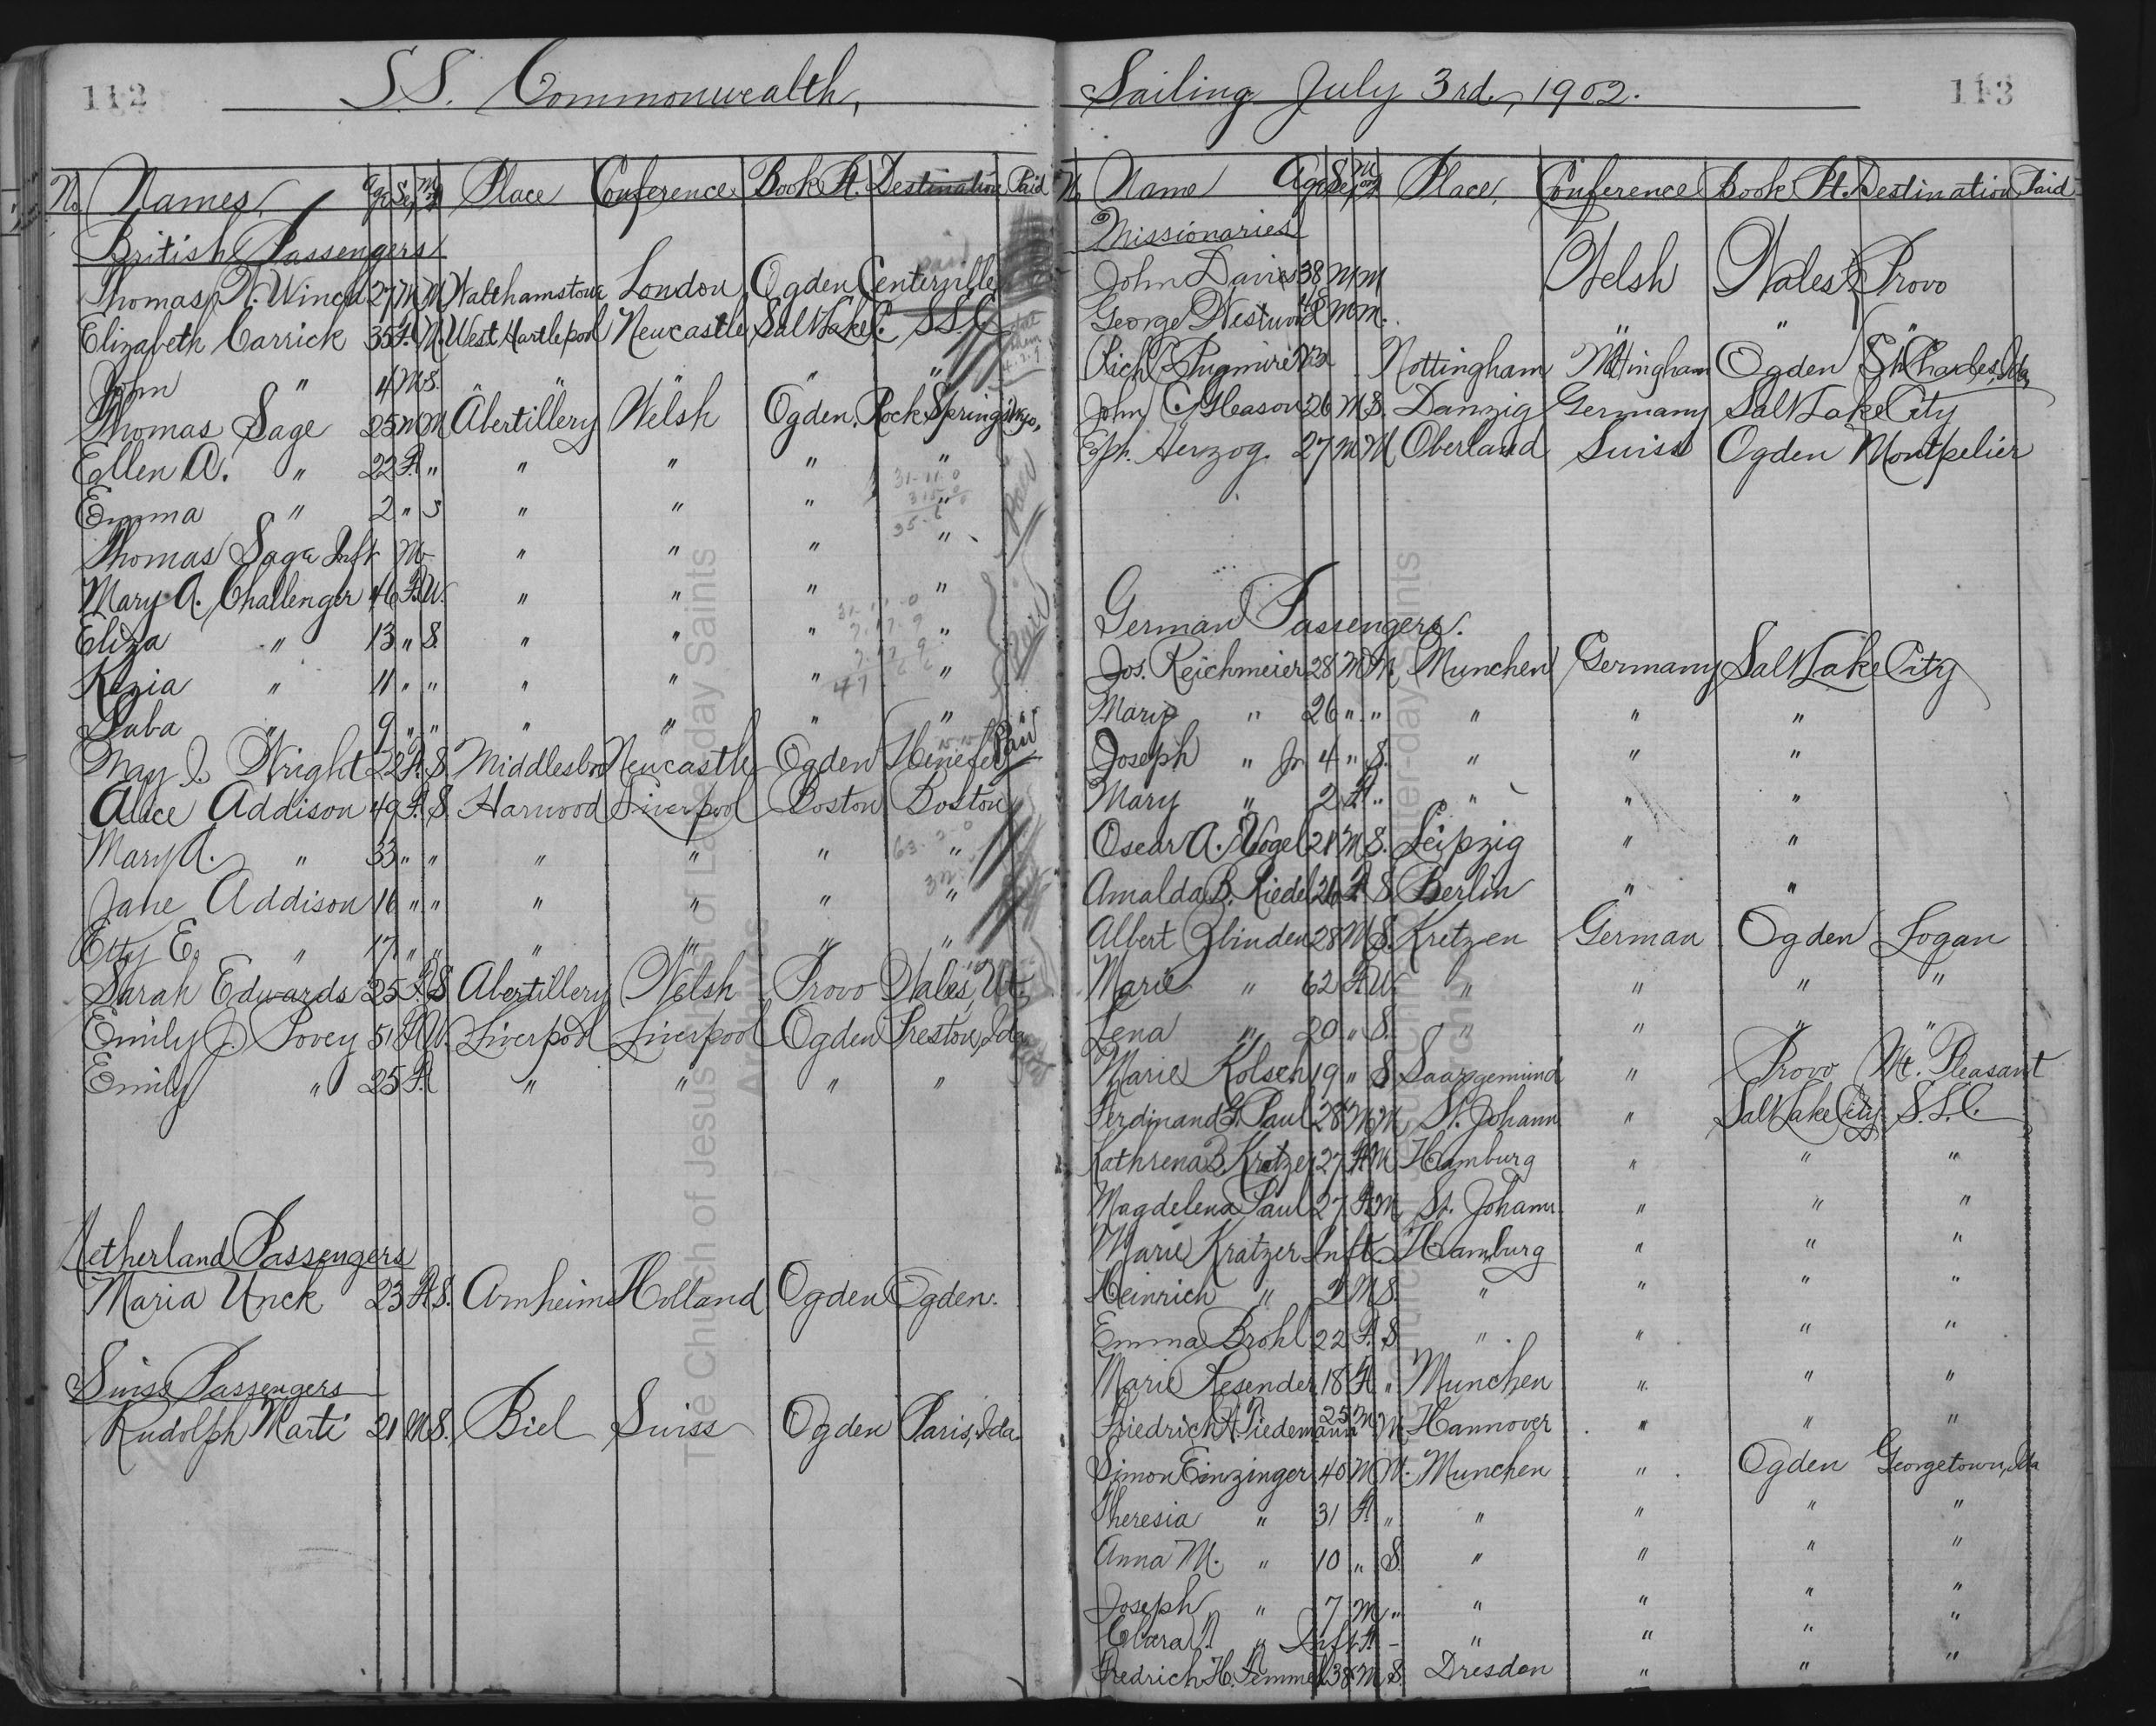 112
S.S. Commonwealth,
No Names Age Sex M or S Place Conference Book Pt. Destination Paid
British Passengers
Thomas W. Winch 27 M M Walthamstow London Ogden Centerville
Elizabeth Carrick 35 F. M. West Hartlepool Newcastle Salt Lake C. S.L.C.
John " 4 M S. " " " "
Thomas Sage 25 M M Abertillery Welsh Ogden, Rock Springs Wyo.
Ellen A. " 22 F. " " " " "
Emma " 2 " S " " " "
Thomas Sage Inft M - " " " "
Mary A. Challenger 46 F. W. " " " "
Eliza " 13 " S. " " " "
Kezia " 11 " " " " " "
Saba " 9 " " " " " "
May J. Wright 22 F. S. Middlesbro Newcastle Ogden Henefer Paid
Alice Addison 49 F. S. Harwood Liverpool Boston Boston
Mary A. " 33 " " " " " "
Jane Addison 16 " " " " " "
Etty E. " 17 " " " " " "
Sarah Edwards 25 F. S Abertillery Welsh Provo Wales, Ut.
Emily J. Povey 51 F. W. Liverpool Liverpool Ogden Preston, Ida
Emily " 25 F. " " " "
Netherland Passengers
Maria Unck 23 F. S. Arnheim Holland Ogden Ogden.
Swiss Passengers
Rudolph Marti 21 M S. Biel Swiss Ogden Paris, Ida.
113
Sailing July 3rd., 1902.
No Name Age Sex M or S Place, Conference Book Pt. Destination Paid
Missionaries
John Davies 38 M M Welsh Wales Provo
George Westwood 48 M M. " " "
Rich. C. Pugmire Nottingham Nottingham Ogden St. Charles, Ida,
John C. Gleason 26 M S. Danzig Germany Salt Lake City
Eph. Herzog. 27 M M Oberland Swiss Ogden Montpelier
German Passengers.
Jos. Reichmeier 28 M M, Munchen Germany Salt Lake City
Mary " 26 " " " " "
Joseph " Jr 4 " S. " " "
Mary " 2 F. " " " "
Oscar A. Vogel 21 M S. Leipzig " "
Amalda B. Riedel 26 F. S Berlin " "
Albert Zbinden 28 M S. Kretzen German Ogden Logan
Marie " 62 F. W. " " " "
Lena " 20 " S. " " " "
Marie Kolsch 19 " S Saargemund " Provo Mt. Pleasant
Ferdinand G. Paul 28 M M St. Johann " Salt Lake City S.L.C.
Kathrena B. Kratzer 27 F M Hamburg " " "
Magdelena Paul 27 F. M. St. Johann " " "
Marie Kratzer Inft. Hamburg " " "
Heinrich " 2 M S. " " " "
Emma Brohl 22 F. S " " " "
Marie Resender 18 F. " Munchen " " "
Friedrich A. Tiedemann 25 M M Hannover " " "
Simon Einzinger 40 M M. Munchen " Ogden Georgetown, Ida
Theresia " 31 F. " " " " "
Anna M. " 10 " S. " " " "
Joseph " 7 M " " " " "
Clara N. " Inft F. - " " " "
Fredrich H. Temmel 38 M. S. Dresden " " "
The Church of Jesus Christ of Latter-day Saints
Archives
The Church of Jesus Christ of Latter-day Saints
Archives